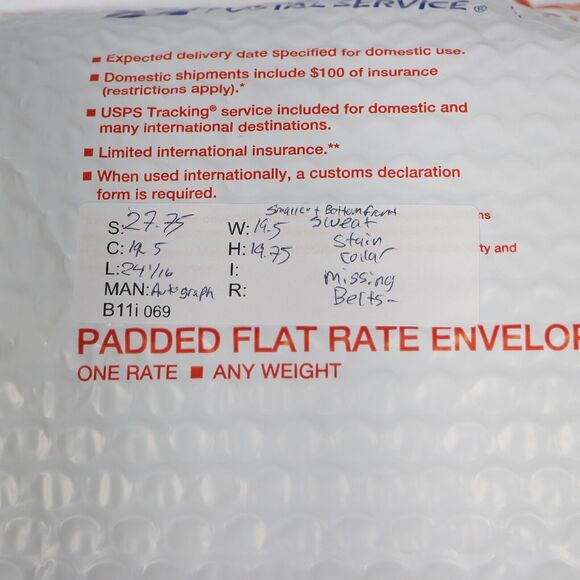 POSTAL SERVICE ®
■ Expected delivery date specified for domestic use.
■ Domestic shipments include $100 of insurance
(restrictions apply).*
■ USPS Tracking® service included for domestic and
many international destinations.
■ Limited international insurance.**
■ When used internationally, a customs declaration
form is required.
S: 27.75
W: 19.5
C: 19.5
H: 19.75
L: 24 1/16
I:
MAN: Autograph
R:
B11i 069
Bottom front
Sweat
Stain
Collar
missing
Belts-
ns
ty and
PADDED FLAT RATE ENVELOP
ONE RATE ■ ANY WEIGHT